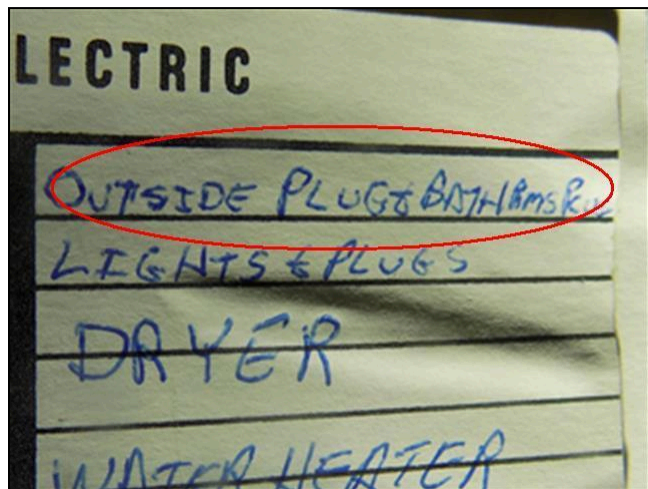 LECTRIC
OUTSIDE PLUG & BATH RMS
LIGHTS & PLUGS
DRYER
WATER HEATER